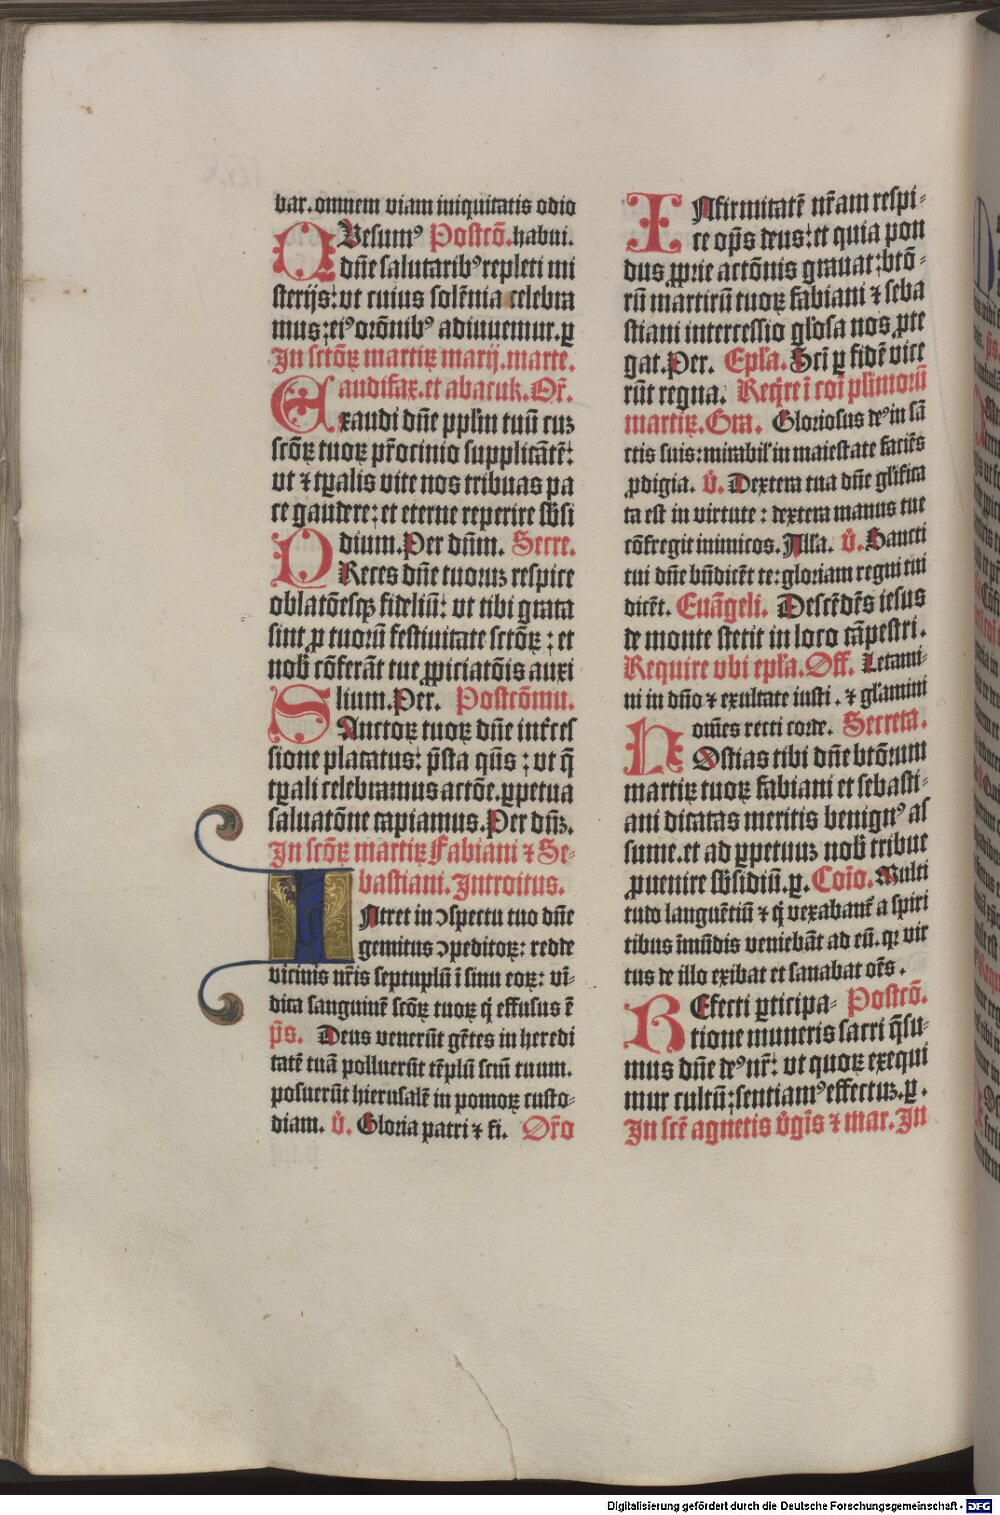 bar. omnem viam iniquitatis odio
Vesumꝰ Postcō. habui.
Q dn̄e salutaribꝰ repleti mi
sterijs: vt cuius solēnia celebra
mus: eiꝰ orōnibꝰ adiuuemur. ꝑ
In sctōꝝ martiꝝ marij. marte.
audifax. et abacuk. Or̄.
Exaudi dn̄e pplm̄ tuū cuꝫ
sctōꝝ tuoꝝ pr̄ocinio supplicātē:
vt ⁊ tꝑalis vite nos tribuas pa
ce gaudere: et eterne reperire sb̄si
dium. Per dn̄m. Secre.
PReces dn̄e tuoruꝫ respice
oblatōesqꝫ fideliū: vt tibi grata
sint ꝓ tuorū festiuitate sctōꝝ: et
nob̄ cōferāt tue ꝓpiciatōis auxi
lium. Per. Postcōmu.
SAnctoꝝ tuoꝝ dn̄e int̄ces
sione placatus: p̄sta qn̄s: vt q̄
tꝑali celebramus actōe. ꝑpetua
saluatōne capiamus. Per dn̄ꝫ.
In sctōꝝ martiꝝ Fabiani ⁊ Se-
bastiani. Introitus.
INtret in ↄspectu tuo dn̄e
gemitus ↄpeditoꝝ: redde
vicinis nr̄is septuplū ī sinu eoꝝ: vī-
dica sanguinē sctōꝝ tuoꝝ q̄ effusus ē
p̄s. Deus venerūt gētes in heredi
tatē tuā polluerūt tēplū scm̄ tuum.
posuerūt hierusalē in pomoꝝ custo-
diam. v̄. Gloria patri ⁊ fi. Or̄o
INfirmitatē nr̄am respi-
ce op̄s deus: et quia pon
dus ꝓprie actōnis grauat: btō-
rū martirū tuoꝝ fabiani ⁊ seba
stiani intercessio gl̄osa nos ꝓte
gat. Per. Epl̄a. Sci̅ ꝑ fidē vice
rūt regna. Req̄re ī coi̅ plīmorū
martiꝝ. Gra. Gloriosus deꝰ in sā
ctis suis: mirabil̓ in maiestate faciēs
ꝓdigia. v̄. Dextera tua dn̄e gl̄ifica
ta est in virtute: dextera manus tue
cōfregit inimicos. All̄a. v̄. Sancti
tui dn̄e bn̄dicēt te: gloriam regni tui
dicēt. Euāgeli. Descēdēs iesus
de monte stetit in loco cāpestri.
Require vbi epl̄a. Off. Letami-
ni in dn̄o ⁊ exultate iusti. ⁊ gl̄amini
om̄es recti corde. Secreta.
HOstias tibi dn̄e btōrum
martiꝝ tuoꝝ fabiani et sebasti-
ani dicatas meritis benignꝰ as
sume. et ad ꝑpetuuꝫ nob̄ tribue
ꝓuenire sb̄sidiū. ꝑ. Coi̅o. Multi
tudo languētiū ⁊ q̄ vexabant̄ a spiri
tibus īmūdis veniebāt ad eū. qꝛ vir
tus de illo exibat et sanabat oēs.
REfecti ꝑticipa- Postcō.
tione muneris sacri q̄su-
mus dn̄e deꝰ nr̄: vt quoꝝ exequi
mur cultū: sentiamꝰ effectuꝫ. ꝑ.
In scē agnetis v̄gīs ⁊ mar. In
Digitalisierung gefördert durch die Deutsche Forschungsgemeinschaft - DFG